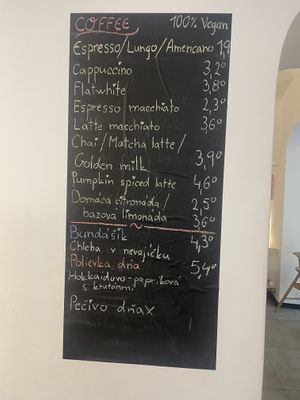 COFFEE 100% Vegan
Espresso/Lungo/Americano 1,9
Cappuccino 3,2°
Flatwhite 3,8°
Espresso macchiato 2,3°
Latte macchiato 3,6°
Chai/Matcha latte/
Golden milk 3,9°
Pumpkin spiced latte 4,6°
Domáca citronáda/ 2,5°
bazova limonáda 3,6°
Bundášik 4,3°
Chleba v nevajíčku
Polievka dňa 5,4°
Hokkaidovo-papriková
s krutónmi
Pečivo dňa x